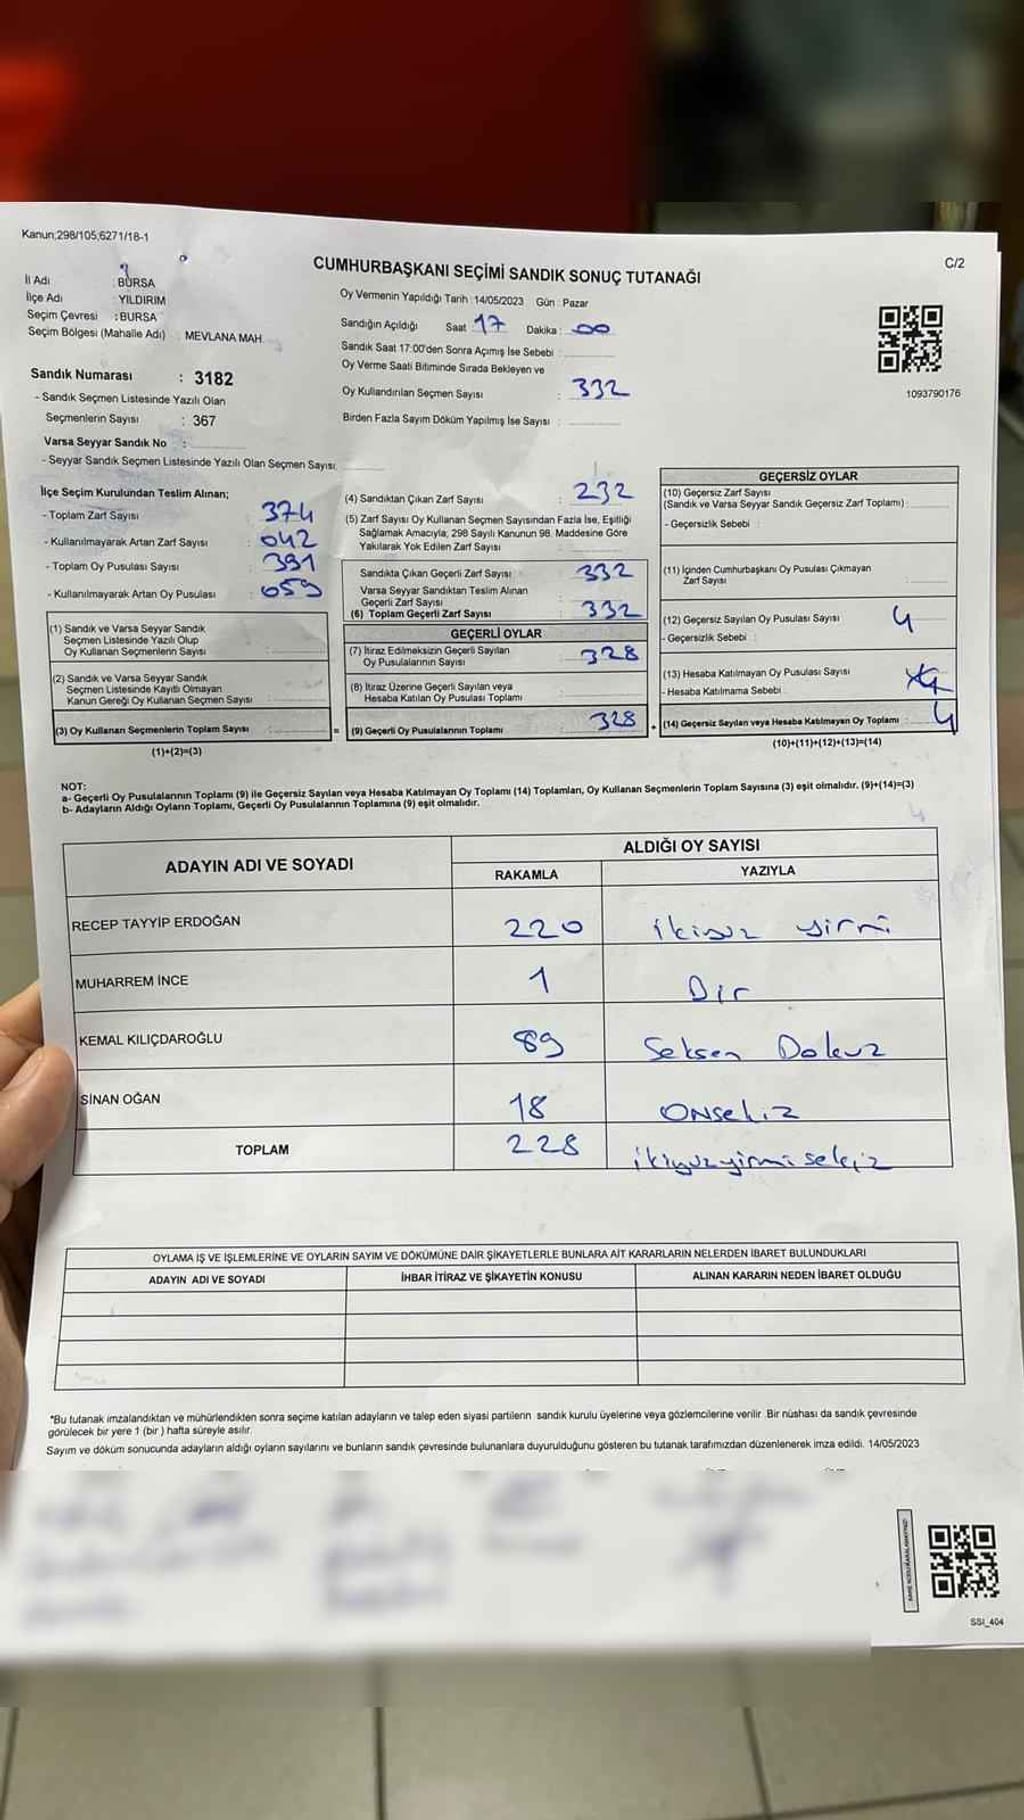 Kanun;298/105;6271/18-1
C/2
CUMHURBAŞKANI SEÇİMİ SANDIK SONUÇ TUTANAĞI
İl Adı : BURSA
İlçe Adı : YILDIRIM
Seçim Çevresi : BURSA
Seçim Bölgesi (Mahalle Adı) : MEVLANA MAH.
Sandık Numarası : 3182
- Sandık Seçmen Listesinde Yazılı Olan
Seçmenlerin Sayısı : 367
Varsa Seyyar Sandık No :
- Seyyar Sandık Seçmen Listesinde Yazılı Olan Seçmen Sayısı:
Oy Vermenin Yapıldığı Tarih : 14/05/2023 Gün : Pazar
Sandığın Açıldığı Saat : 17 Dakika : 00
Sandık Saat 17:00'den Sonra Açımış İse Sebebi :
Oy Verme Saati Bitiminde Sırada Bekleyen ve
Oy Kullandırılan Seçmen Sayısı : 332
Birden Fazla Sayım Döküm Yapılmış İse Sayısı :
1093790176
İlçe Seçim Kurulundan Teslim Alınan;
- Toplam Zarf Sayısı : 374
- Kullanılmayarak Artan Zarf Sayısı : 042
- Toplam Oy Pusulası Sayısı : 391
- Kullanılmayarak Artan Oy Pusulası : 059
(1) Sandık ve Varsa Seyyar Sandık
Seçmen Listesinde Yazılı Olup
Oy Kullanan Seçmenlerin Sayısı :
(2) Sandık ve Varsa Seyyar Sandık
Seçmen Listesinde Kayıtlı Olmayan
Kanun Gereği Oy Kullanan Seçmen Sayısı :
(3) Oy Kullanan Seçmenlerin Toplam Sayısı :
(1)+(2)=(3)
(4) Sandıktan Çıkan Zarf Sayısı : 232
(5) Zarf Sayısı Oy Kullanan Seçmen Sayısından Fazla İse, Eşitliği
Sağlamak Amacıyla; 298 Sayılı Kanunun 98. Maddesine Göre
Yakılarak Yok Edilen Zarf Sayısı :
Sandıkta Çıkan Geçerli Zarf Sayısı : 332
Varsa Seyyar Sandıktan Teslim Alınan
Geçerli Zarf Sayısı
(6) Toplam Geçerli Zarf Sayısı : 332
GEÇERLİ OYLAR
(7) İtiraz Edilmeksizin Geçerli Sayılan
Oy Pusulalarının Sayısı : 328
(8) İtiraz Üzerine Geçerli Sayılan veya
Hesaba Katılan Oy Pusulası Toplamı :
= (9) Geçerli Oy Pusulalarının Toplamı : 328 +
GEÇERSİZ OYLAR
(10) Geçersiz Zarf Sayısı
(Sandık ve Varsa Seyyar Sandık Geçersiz Zarf Toplamı) :
- Geçersizlik Sebebi :
(11) İçinden Cumhurbaşkanı Oy Pusulası Çıkmayan
Zarf Sayısı :
(12) Geçersiz Sayılan Oy Pusulası Sayısı : 4
- Geçersizlik Sebebi :
(13) Hesaba Katılmayan Oy Pusulası Sayısı
- Hesaba Katılmama Sebebi :
(14) Geçersiz Sayılan veya Hesaba Katılmayan Oy Toplamı : 4
(10)+(11)+(12)+(13)=(14)
NOT:
a- Geçerli Oy Pusulalarının Toplamı (9) ile Geçersiz Sayılan veya Hesaba Katılmayan Oy Toplamı (14) Toplamları, Oy Kullanan Seçmenlerin Toplam Sayısına (3) eşit olmalıdır. (9)+(14)=(3)
b- Adayların Aldığı Oyların Toplamı, Geçerli Oy Pusulalarının Toplamına (9) eşit olmalıdır.
ADAYIN ADI VE SOYADI
ALDIĞI OY SAYISI
RAKAMLA YAZIYLA
RECEP TAYYİP ERDOĞAN 220 ikiyüz yirmi
MUHARREM İNCE 1 Bir
KEMAL KILIÇDAROĞLU 89 Seksen Dokuz
SİNAN OĞAN 18 ONsekiz
TOPLAM 228 ikiyüzyirmisekiz
OYLAMA İŞ VE İŞLEMLERİNE VE OYLARIN SAYIM VE DÖKÜMÜNE DAİR ŞİKAYETLERLE BUNLARA AİT KARARLARIN NELERDEN İBARET BULUNDUKLARI
ADAYIN ADI VE SOYADI İHBAR İTİRAZ VE ŞİKAYETİN KONUSU ALINAN KARARIN NEDEN İBARET OLDUĞU
*Bu tutanak imzalandıktan ve mühürlendikten sonra seçime katılan adayların ve talep eden siyasi partilerin sandık kurulu üyelerine veya gözlemcilerine verilir. Bir nüshası da sandık çevresinde
görülecek bir yere 1 (bir ) hafta süreyle asılır.
Sayım ve döküm sonucunda adayların aldığı oyların sayılarını ve bunların sandık çevresinde bulunanlara duyurulduğunu gösteren bu tutanak tarafımızdan düzenlenerek imza edildi. 14/05/2023
SSI_404